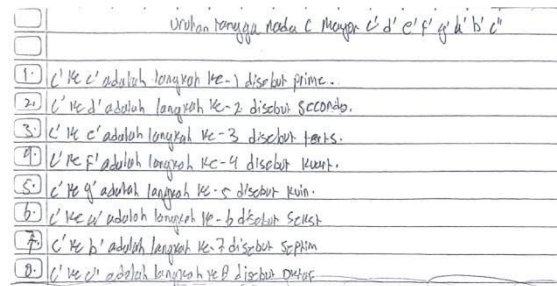 Urutan tangga nada C Mayor c' d' e' f' g' a' b' c"
1. c' ke c' adalah langkah ke-1 disebut prime.
2. c' ke d' adalah langkah ke-2 disebut secondo.
3. c' ke e' adalah langkah ke-3 disebut terts.
4. c' ke f' adalah langkah ke-4 disebut kwart.
5. c' ke g' adalah langkah ke-5 disebut kuin.
6. c' ke a' adalah langkah ke-6 disebut sekst
7. c' ke b' adalah langkah ke-7 disebut septim
8. c' ke c' adalah langkah ke 8 disebut oktaf